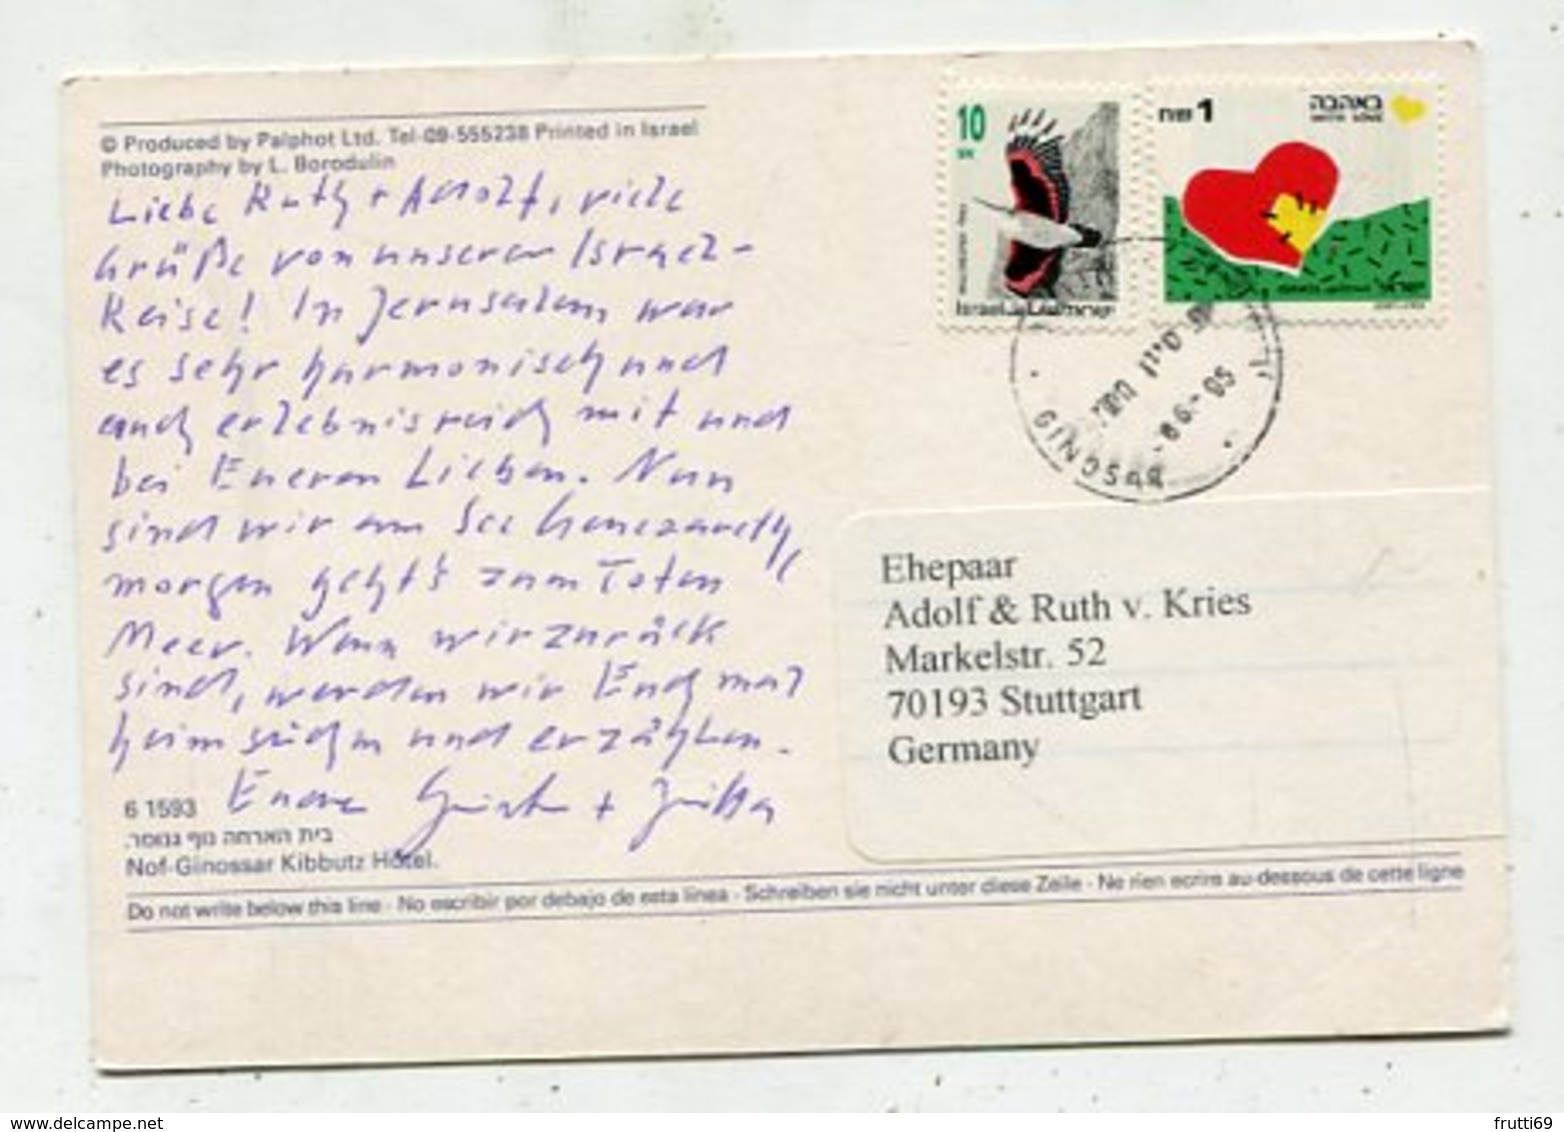 © Produced by Palphot Ltd. Tel-09-555238 Printed in Israel
Photography by L. Borodulin
Liebe Ruth + Adolf, viele
Grüße von unserer Israel-
Reise! In Jerusalem war
es sehr harmonisch und
auch erlebnisreich mit und
bei Eueren Lieben. Nun
sind wir am See Genezareth,
morgen geht's zum Toten
Meer. Wenn wir zurück
sind, werden wir Euch mal
heimsuchen und erzählen.
Euere
6 1593
בית הארחה נוף גנוסר.
Nof-Ginossar Kibbutz Hotel.
Do not write below this line - No escribir por debajo de esta linea - Schreiben sie nicht unter diese Zeile - Ne rien ecrire au-dessous de cette ligne
10
Israel ישראל
1 שח
באהבה
WITH LOVE
GINOSSAR
Ehepaar
Adolf & Ruth v. Kries
Markelstr. 52
70193 Stuttgart
Germany
frutti69
www.delcampe.net